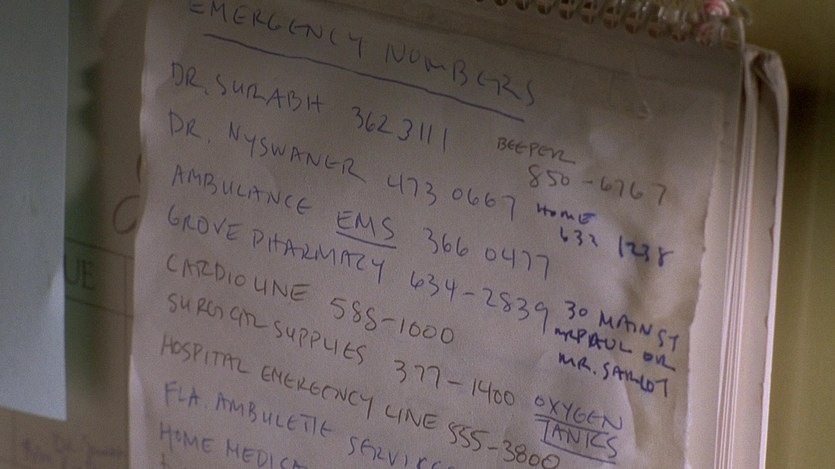 EMERGENCY NUMBERS
DR. SURABH 362 3111 BEEPER
850-6767
DR. NYSWANER 473 0667 HOME
633 1238
AMBULANCE EMS 366 0477
GROVE PHARMACY 634-2839 30 MAIN ST
MR PAUL OR
MR.
CARDIO LINE 588-1000
SURGICAL SUPPLIES 377-1400 OXYGEN
TANKS
HOSPITAL EMERGENCY LINE 555-3800
FLA. AMBULETTE SERVICES
HOME
UE